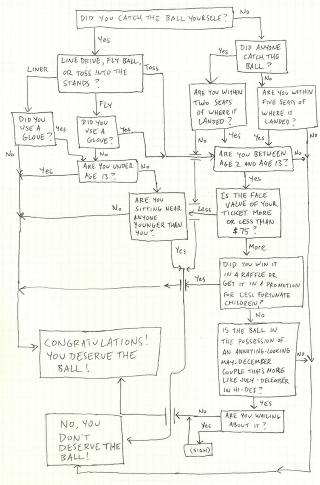 DID YOU CATCH THE BALL YOURSELF?
No
Yes
DID ANYONE
CATCH THE
BALL?
Yes
No
LINER
LINE DRIVE, FLY BALL,
OR TOSS INTO THE
STANDS?
TOSS
FLY
ARE YOU WITHIN
TWO SEATS
OF WHERE IT
LANDED?
ARE YOU WITHIN
FIVE SEATS OF
WHERE IT
LANDED?
DID YOU
USE A
GLOVE?
Yes
DID YOU
USE A
GLOVE?
Yes
No
Yes
Yes
No
No
No
ARE YOU BETWEEN
AGE 2 AND AGE 13?
No
Yes
ARE YOU UNDER
AGE 13?
No
Yes
ARE YOU
SITTING NEAR
ANYONE
YOUNGER THAN
YOU?
No
Yes
IS THE FACE
VALUE OF YOUR
TICKET MORE
OR LESS THAN
$75?
Less
More
DID YOU WIN IT
IN A RAFFLE OR
GET IT IN A PROMOTION
FOR LESS FORTUNATE
CHILDREN?
Yes
No
IS THE BALL IN
THE POSSESSION OF
AN ANNOYING-LOOKING
MAY-DECEMBER
COUPLE THAT'S MORE
LIKE JULY-DECEMBER
IN HI-DEF?
No
Yes
ARE YOU WAILING
ABOUT IT?
No
Yes
(SIGH)
CONGRATULATIONS!
YOU DESERVE THE
BALL!
NO, YOU
DON'T
DESERVE THE
BALL!